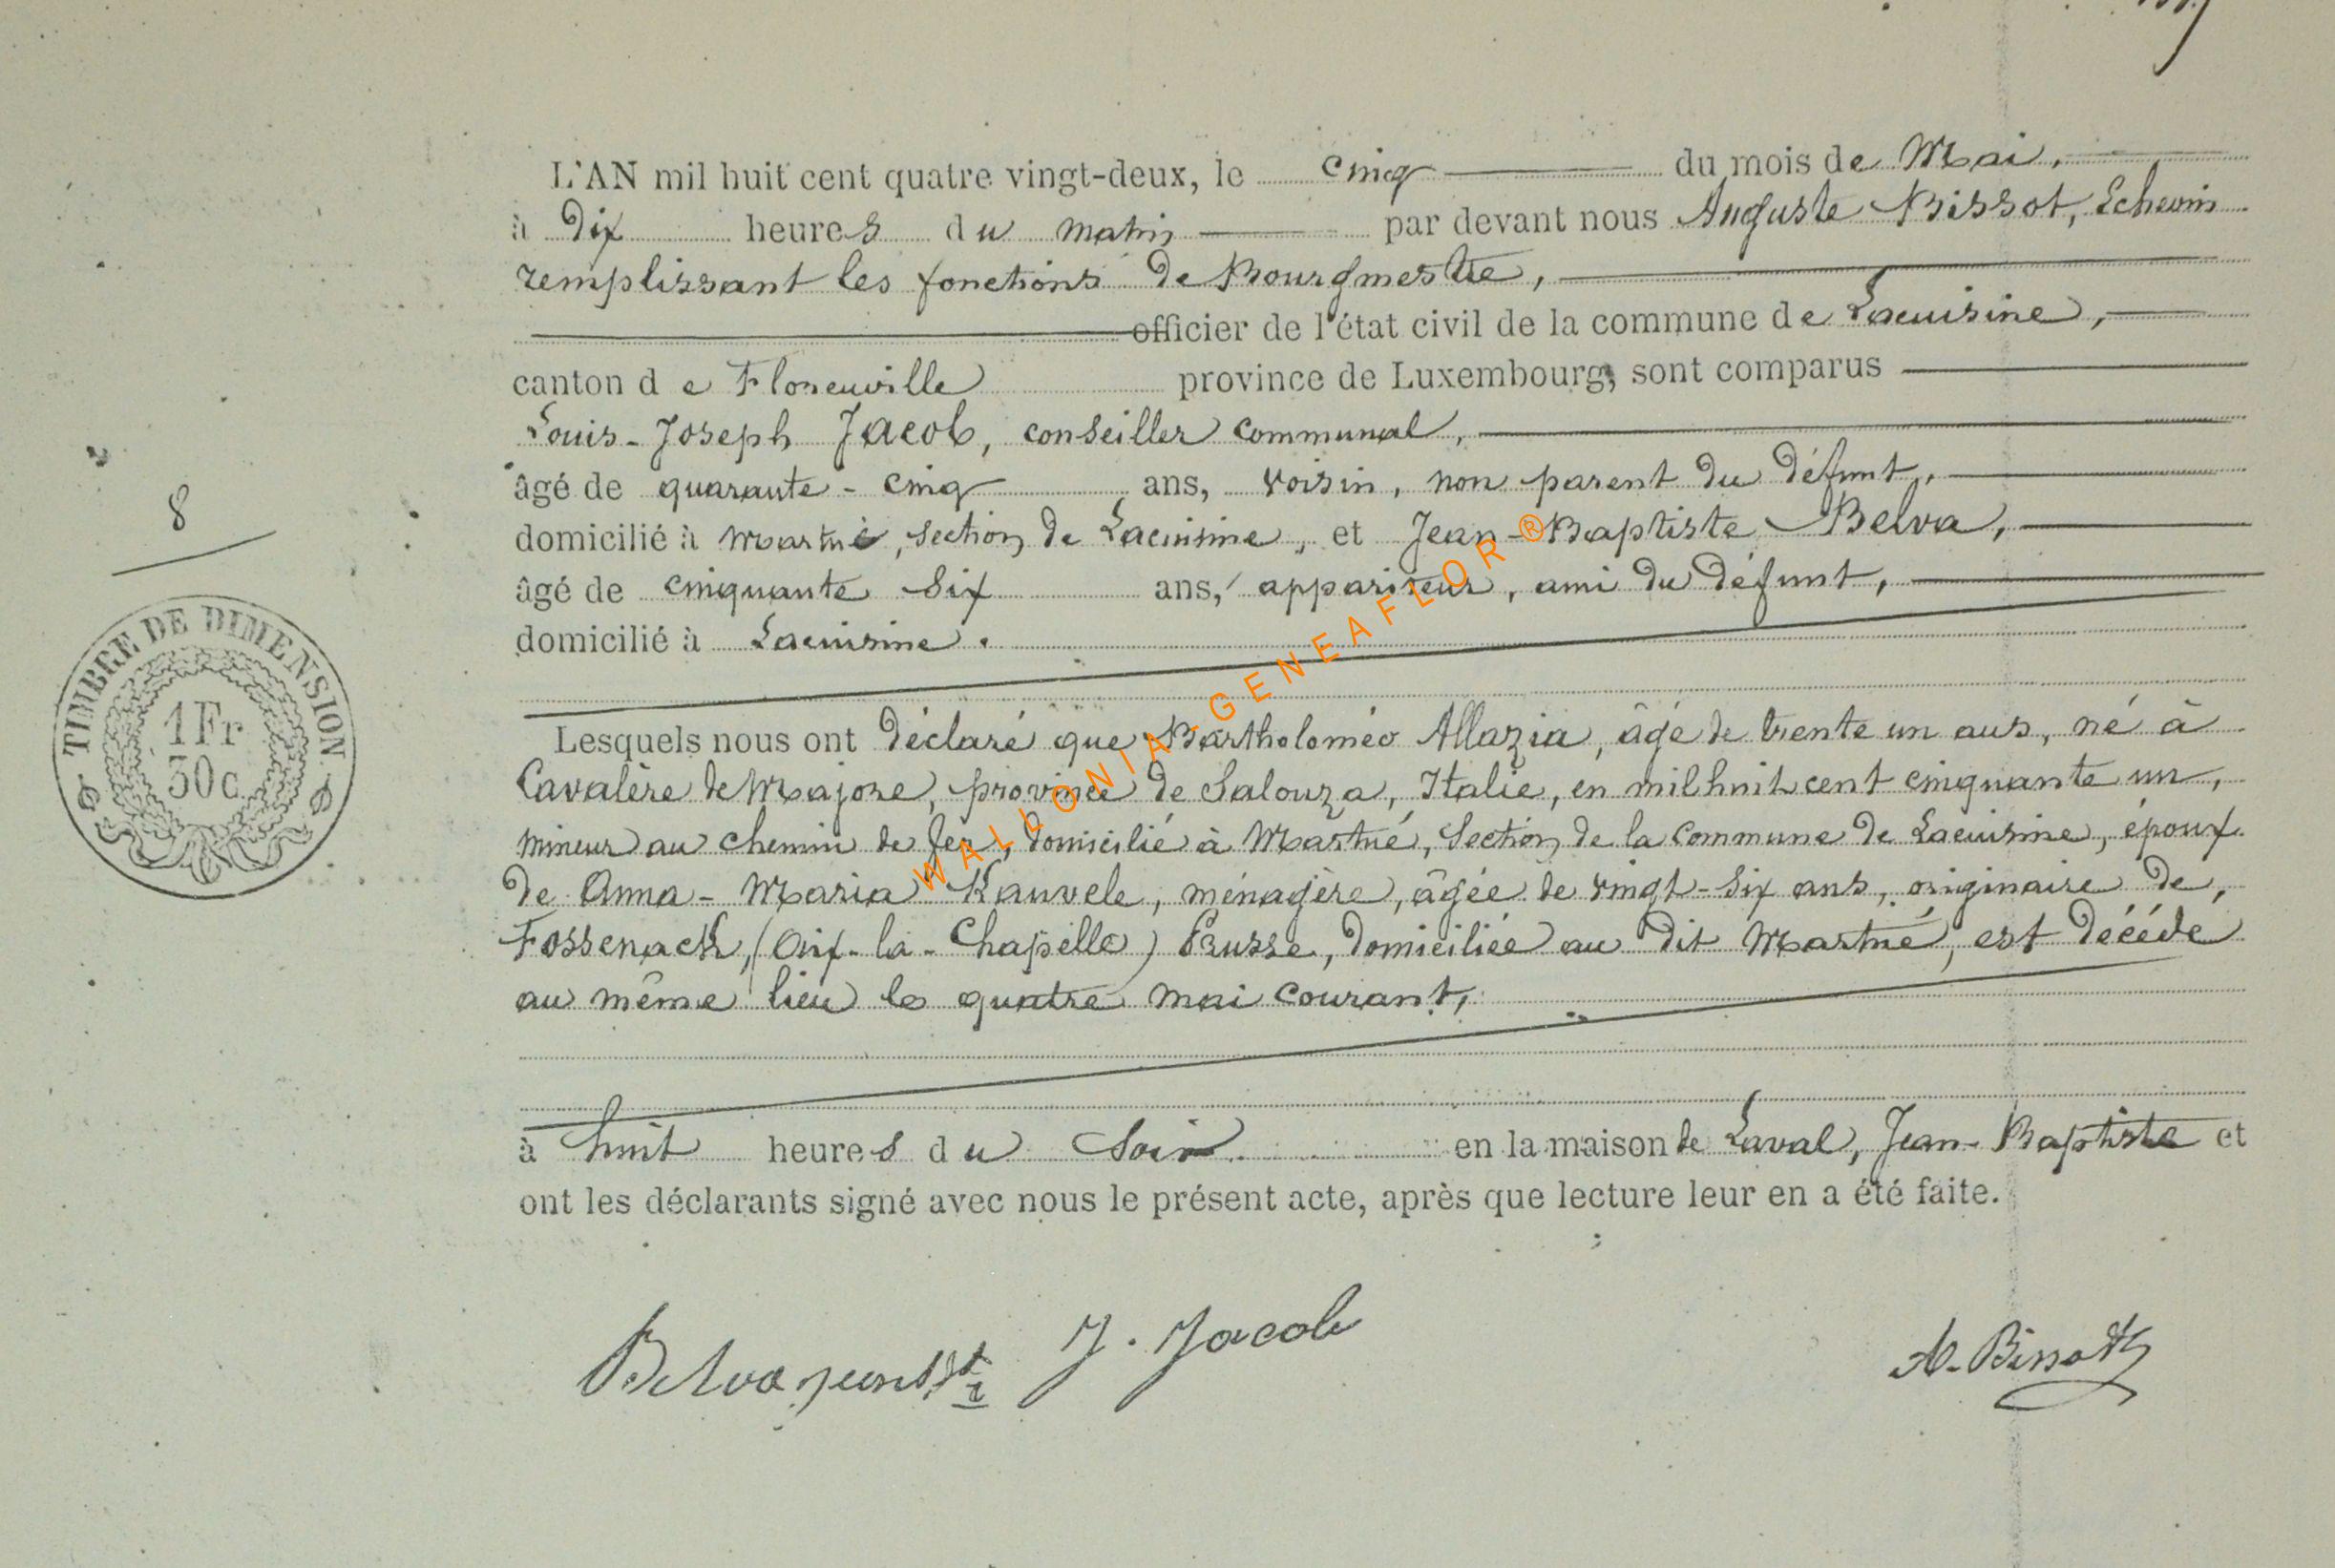 L'AN mil huit cent quatre vingt-deux, le cinq du mois de Mai,
à dix heures du matin par devant nous Auguste Bissot, Echevin
remplissant les fonctions de Bourgmestre,
officier de l'état civil de la commune de Lacuisine,
canton de Florenville province de Luxembourg, sont comparus
Louis-Joseph Jacob, conseiller communal,
âgé de quarante-cinq ans, voisin, non parent du défunt,
domicilié à Martué, section de Lacuisine, et Jean-Baptiste Belva,
âgé de cinquante six ans, appariteur, ami du défunt,
domicilié à Lacuisine.
Lesquels nous ont déclaré que Bartholoméo Allazia, âgé de trente un ans, né à
Cavalère de Majore, province de Salouza, Italie, en mil huit cent cinquante un,
mineur au chemin de fer, domicilié à Martué, Section de la commune de Lacuisine, époux
de Anna-Maria Kauvele, ménagère, âgée de vingt-six ans, originaire de,
Fossenack, (Aix-la-Chapelle) Prusse, domiciliée au dit Martué, est décédé
au même lieu le quatre mai courant,
à huit heures du soir en la maison de Laval, Jean-Baptiste et
ont les déclarants signé avec nous le présent acte, après que lecture leur en a été faite.
8
TIMBRE DE DIMENSION
1Fr
30c
WALLONIA-GENEAFLOR®
Belva J. Jacob A. Bissot